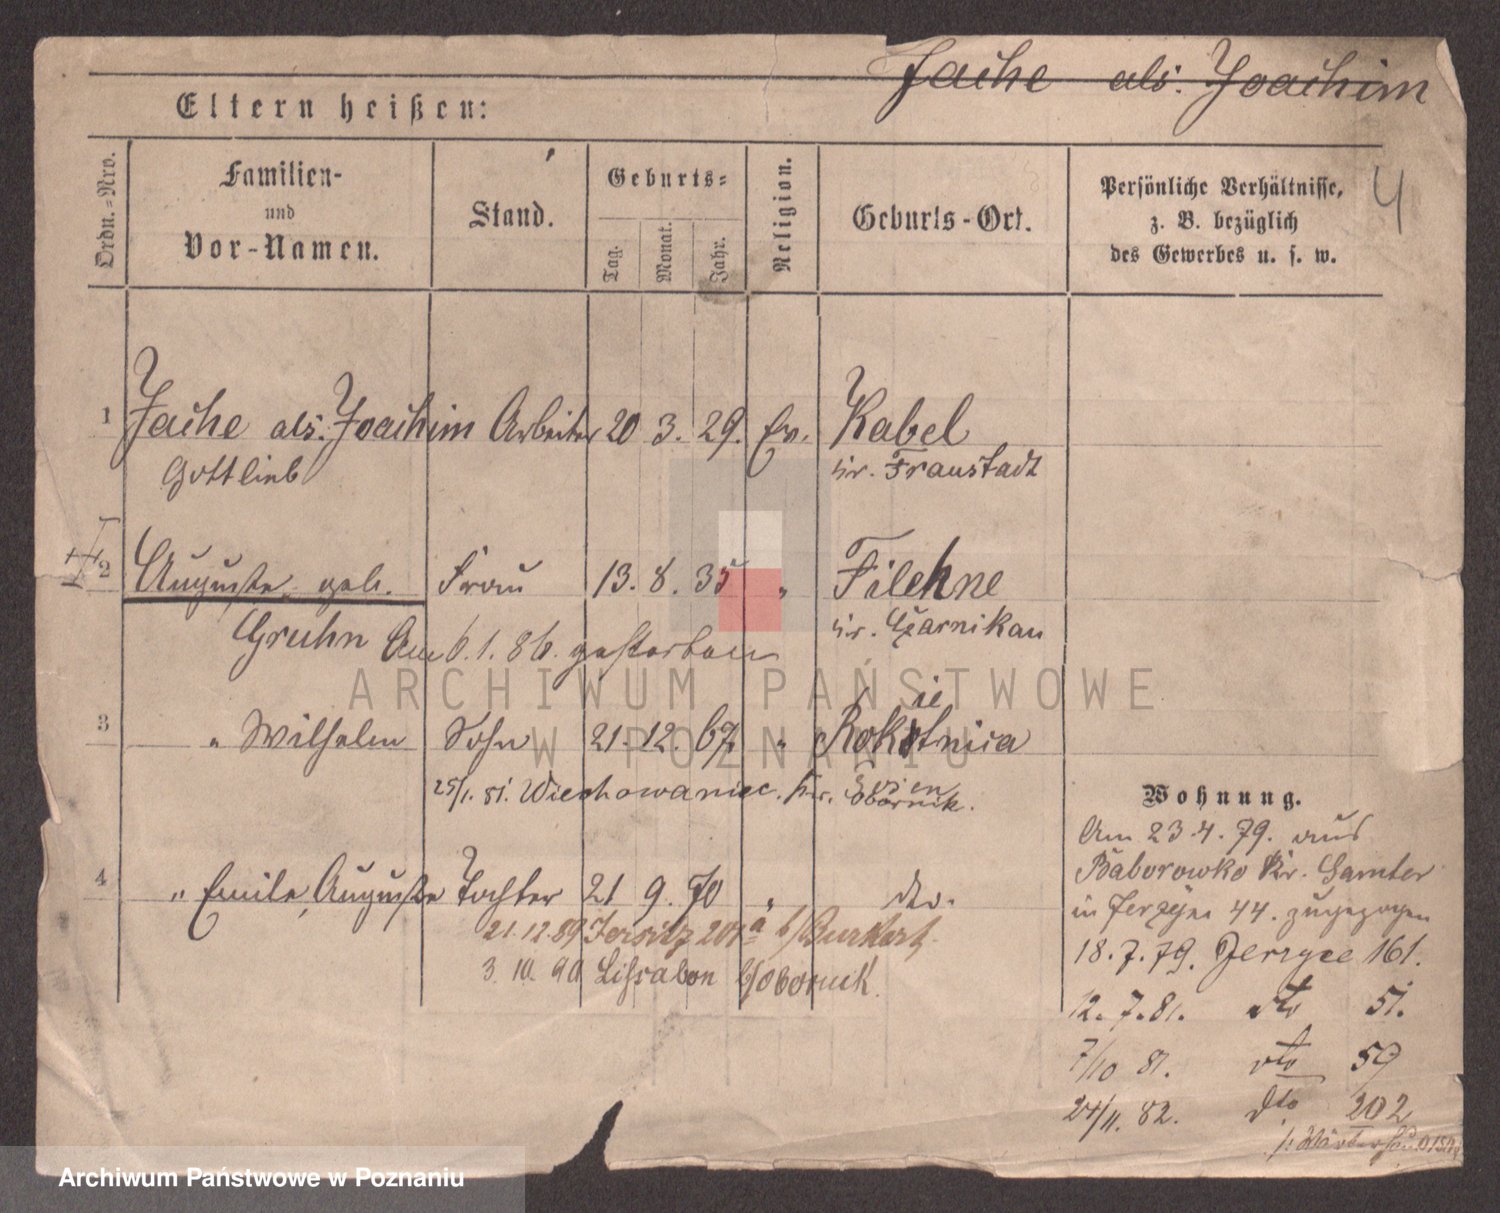 Jache als: Joachim
Eltern heißen:
Ordn.-Nro.
Familien-
und
Vor-Namen.
Stand.
Geburts=
Tag.
Monat.
Jahr.
Religion.
Geburts-Ort.
Persönliche Verhältnisse,
z. B. bezüglich
des Gewerbes u. s. w.
4
1 Jache als: Joachim Arbeiter 20 3. 29. Ev. Kabel
Gottlieb Kr. Fraustadt
2 Auguste geb. Frau 13. 8. 35 " Filehne
Gruhn Am 6. 1. 86. gestorben Kr. Czarnikau
3 " Wilhelm Sohn 21. 12. 67 " Rokietnica
25/1. 81. Wiechowaniec. Kr. Obornik.
Posen
4 " Emile, Auguste Tochter 21 9. 70 " dto.
21. 12. 89 Jersitz 201a b/Burkert.
3. 10. 90 Lissabon b/Obornik.
Wohnung.
Am 23. 4. 79. aus
Baborowko Kr. Samter
in Jerzyce 44. zugezogen
18. 7. 79. Jerzyce 161.
12. 7. 81. dto 51.
7/10 81. dto 59
24/11. 82. dto 202
ARCHIWUM PAŃSTWOWE
W POZNANIU
Archiwum Państwowe w Poznaniu